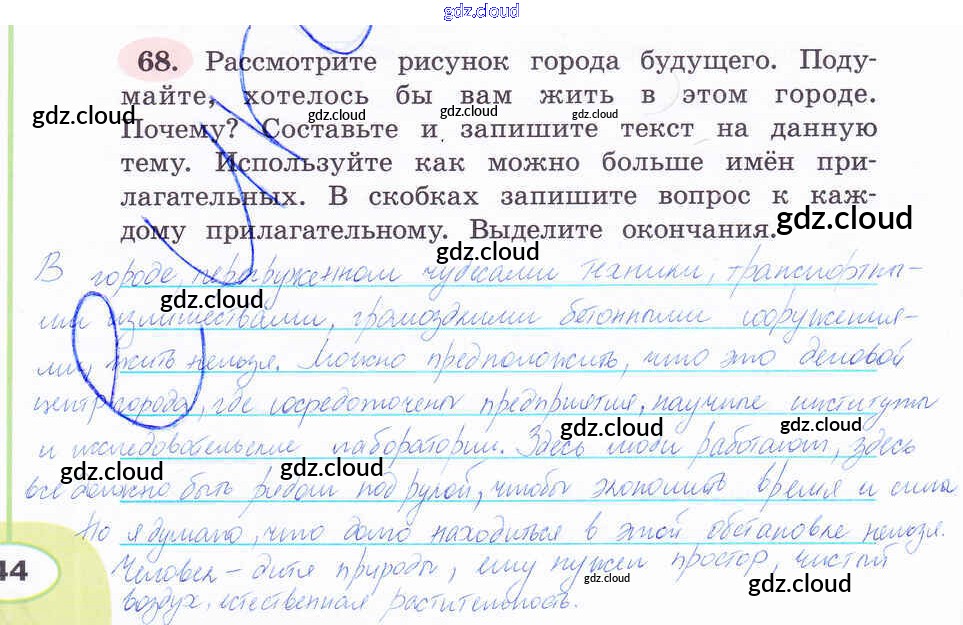 gdz.cloud
68. Рассмотрите рисунок города будущего. Поду-
майте, хотелось бы вам жить в этом городе.
gdz.cloud gdz.cloud gdz.cloud gdz.cloud
Почему? Составьте и запишите текст на данную
тему. Используйте как можно больше имён при-
лагательных. В скобках запишите вопрос к каж-
gdz.cloud
дому прилагательному. Выделите окончания.
gdz.cloud
В городе, перегруженном чудесами техники, транспортны-
gdz.cloud
ми излишествами, громоздкими бетонными сооружения-
ми, жить нельзя. Можно предположить, что это деловой
центр города, где сосредоточены предприятия, научные институты
gdz.cloud gdz.cloud
и исследовательские лаборатории. Здесь люди работают, здесь
gdz.cloud gdz.cloud
все должно быть рядом под рукой, чтобы экономить время и силы.
Но я думаю, что долго находиться в этой обстановке нельзя.
44 Человек - дитя природы, ему нужен простор, чистый
gdz.cloud gdz.cloud
воздух, естественная растительность.